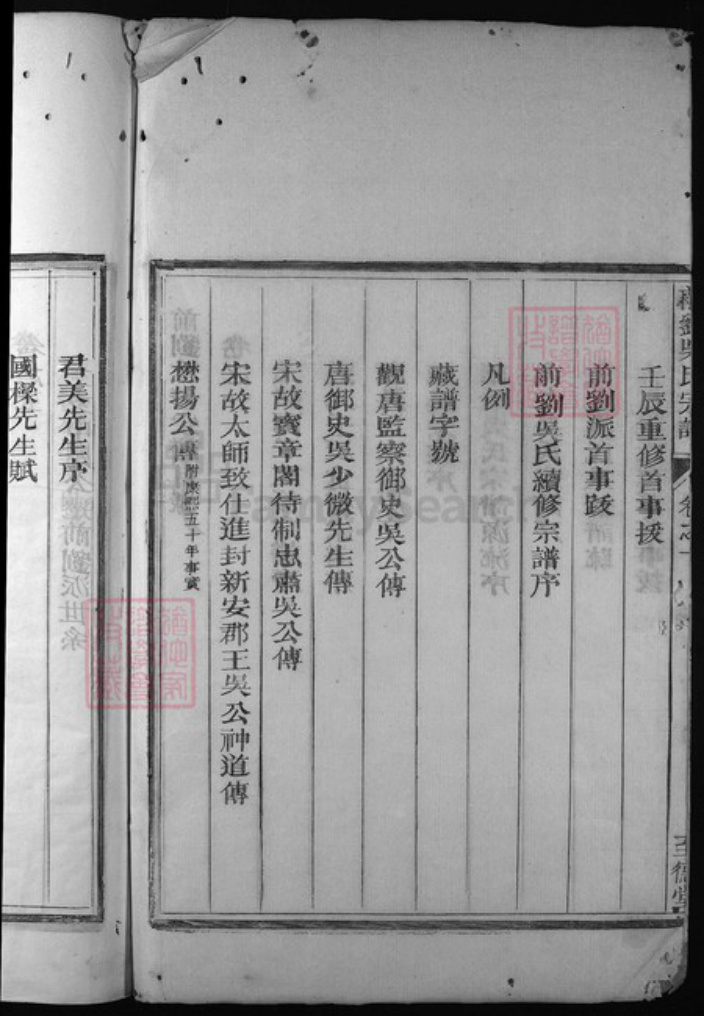 壬辰重修首事援
前劉派首事跋
前劉吳氏續修宗譜序
凡例
藏譜字號
觀唐監察御史吳公傳
唐御史吳少微先生傳
宋故寶章閣待制忠肅吳公傳
宋故太師致仕進封新安郡王吳公神道傳
懋揚公傳附康熙五十年事實
君美先生序
國樑先生賦